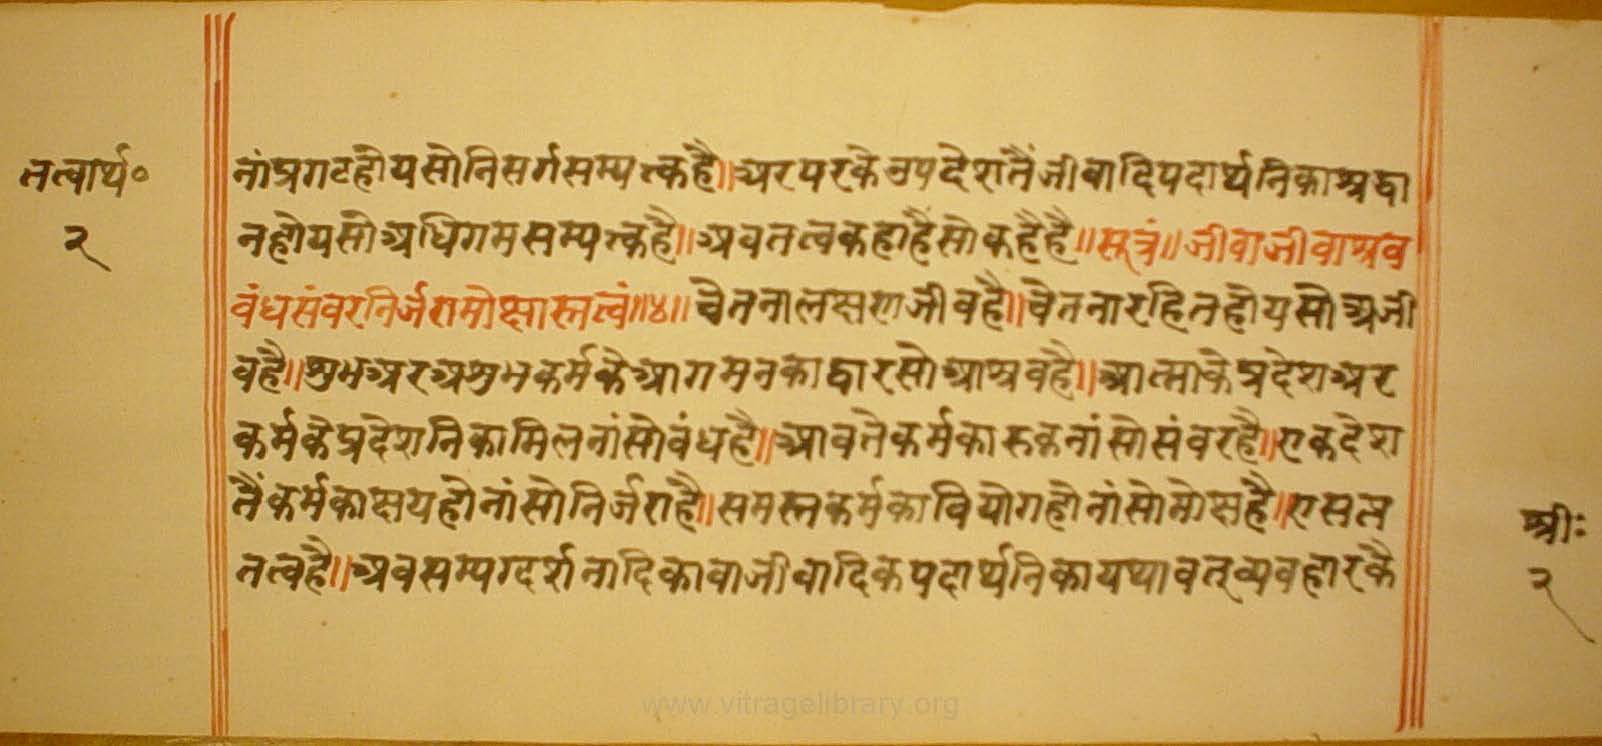 तत्वार्थ०
२
नांप्रगटहोयसोनिसर्गसम्यत्कहै॥अरपरकेउपदेशतैंजीवादिपदार्थनिकाश्रद्धा
नहोयसोअधिगमसम्यत्कहै॥अवतत्वकहाहैसोकहैहै॥सूत्रं॥जीवाजीवाश्रव
वंधसंवरनिर्जरामोक्षास्तत्वं॥४॥चेतनालक्षणजीवहै॥चेतनारहितहोयसोअजी
वहै॥शुभअरअशुभकर्मकेआगमनकाद्वारसोआश्रवहै॥आत्माकेप्रदेशअर
कर्मकेप्रदेशनिकामिलनांसोवंधहै॥आवतेकर्मकारुकनांसोसंवरहै॥एकदेश
तैंकर्मकाक्षयहोनांसोनिर्जराहै॥समस्तकर्मकावियोगहोनांसोमोक्षहै॥एसत्प
तत्वहै॥अवसम्यग्दर्शनादिकावाजीवादिकपदार्थनिकायथावत्व्यवहारकै
श्रीः
२
www.vitragelibrary.org